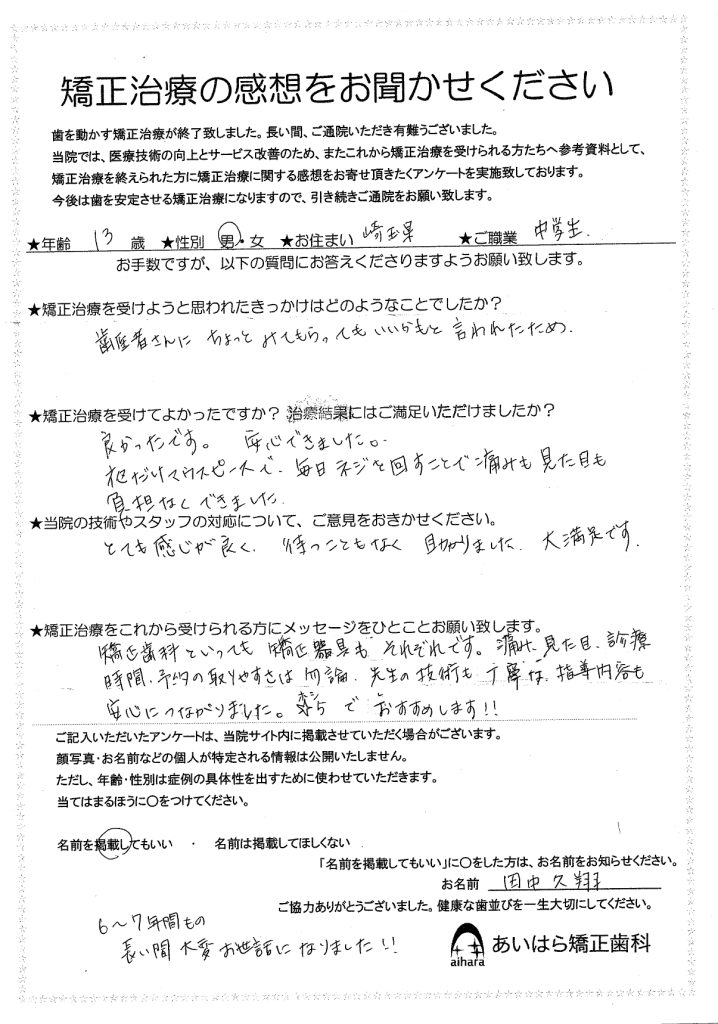 矯正治療の感想をお聞かせください
歯を動かす矯正治療が終了致しました。長い間、ご通院いただき有難うございました。
当院では、医療技術の向上とサービス改善のため、またこれから矯正治療を受けられる方たちへ参考資料として、
矯正治療を終えられた方に矯正治療に関する感想をお寄せ頂きたくアンケートを実施致しております。
今後は歯を安定させる矯正治療になりますので、引き続きご通院をお願い致します。
★年齢 13 歳 ★性別 男・女 ★お住まい 崎玉県 ★ご職業 中学生.
お手数ですが、以下の質問にお答えくださりますようお願い致します。
★矯正治療を受けようと思われたきっかけはどのようなことでしたか?
歯医者さんに ちょっと みてもらってもいいかもと 言われたため.
★矯正治療を受けてよかったですか? 治療結果にはご満足いただけましたか?
良かったです。 安心できました。
夜だけマウスピースで、毎日ネジを回すことで痛みも見た目も
負担なくできました.
★当院の技術やスタッフの対応について、ご意見をおきかせください。
とても感じが良く、待つこともなく 助かりました. 大満足です.
★矯正治療をこれから受けられる方にメッセージをひとことお願い致します。
矯正歯科といっても 矯正器具も それぞれです。痛み、見た目、診療
時間、予約の取りやすさは勿論、先生の技術も 丁寧な、指導内容も
安心につながりました。 で おすすめします!!
ご記入いただいたアンケートは、当院サイト内に掲載させていただく場合がございます。
顔写真・お名前などの個人が特定される情報は公開いたしません。
ただし、年齢・性別は症例の具体性を出すために使わせていただきます。
当てはまるほうに〇をつけてください。
名前を掲載してもいい ・ 名前は掲載してほしくない
「名前を掲載してもいい」に〇をした方は、お名前をお知らせください。
お名前 田中久翔
ご協力ありがとうございました。健康な歯並びを一生大切にしてください。
6〜7年間もの
長い間 大変 お世話になりました!!
aihara あいはら矯正歯科